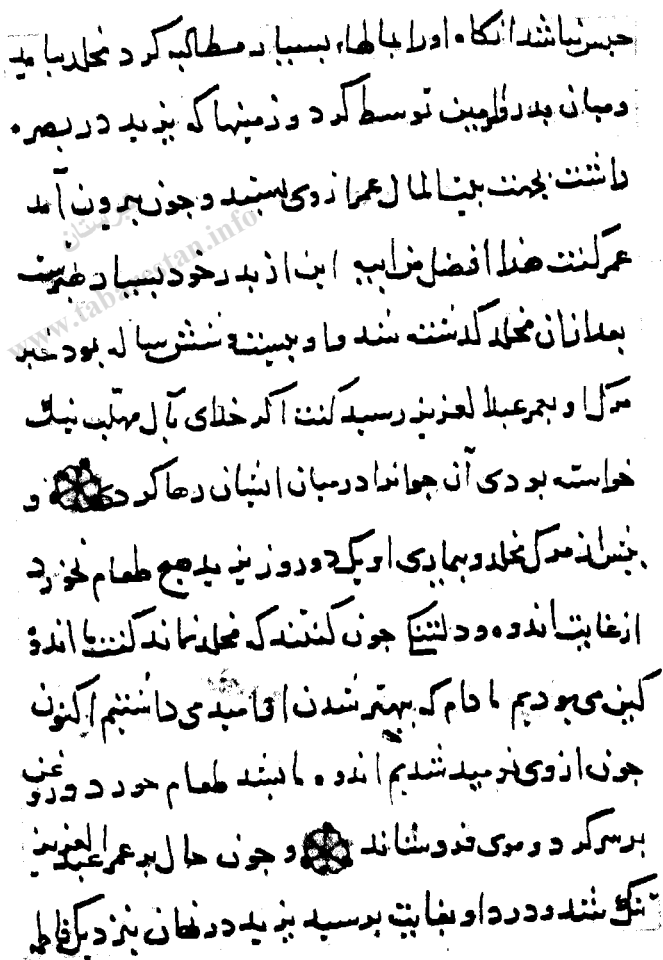 حبس نباشد آنگاه او را بمالهاء بسیار مطالبه کرد مخلد بیامد
و میان پدر و امیرالمومنین توسط کرد و زمینها که یزید در بصره
داشت بجهت بیت المال عمر از وی بستد و چون بیرون آمد
عمر گفت هذا افضل من ابیه این از پدر خود بسیار بهترست
بعد از آن مخلد گذشته شد و او بیست و شش ساله بود خبر
مرگ او بعمر عبد العزیز رسید گفت اگر خدای بآل مهلب نیک
خواسته بودی آن جوانرا در میان ایشان رها کردی و
پس از مرگ مخلد و بیماری او یک دو روز یزید هیچ طعام نخورد
از غایت اندوه و دلتنگی چون گفتند که مخلد نماند گفت با اندوه
کین می بودیم مادام که بهتر شدن او امید می داشتیم اکنون
چون از وی نومید شدیم اندوه ما بشد طعام خورد و روغن
بر سر کرد و موی فرو شاند و چون حال بر عمر عبد العزیز
تنگ شد و درد او بغایت برسید یزید در نهان بنزدیک فاطمه
www.tabarestan.info
تبرستان